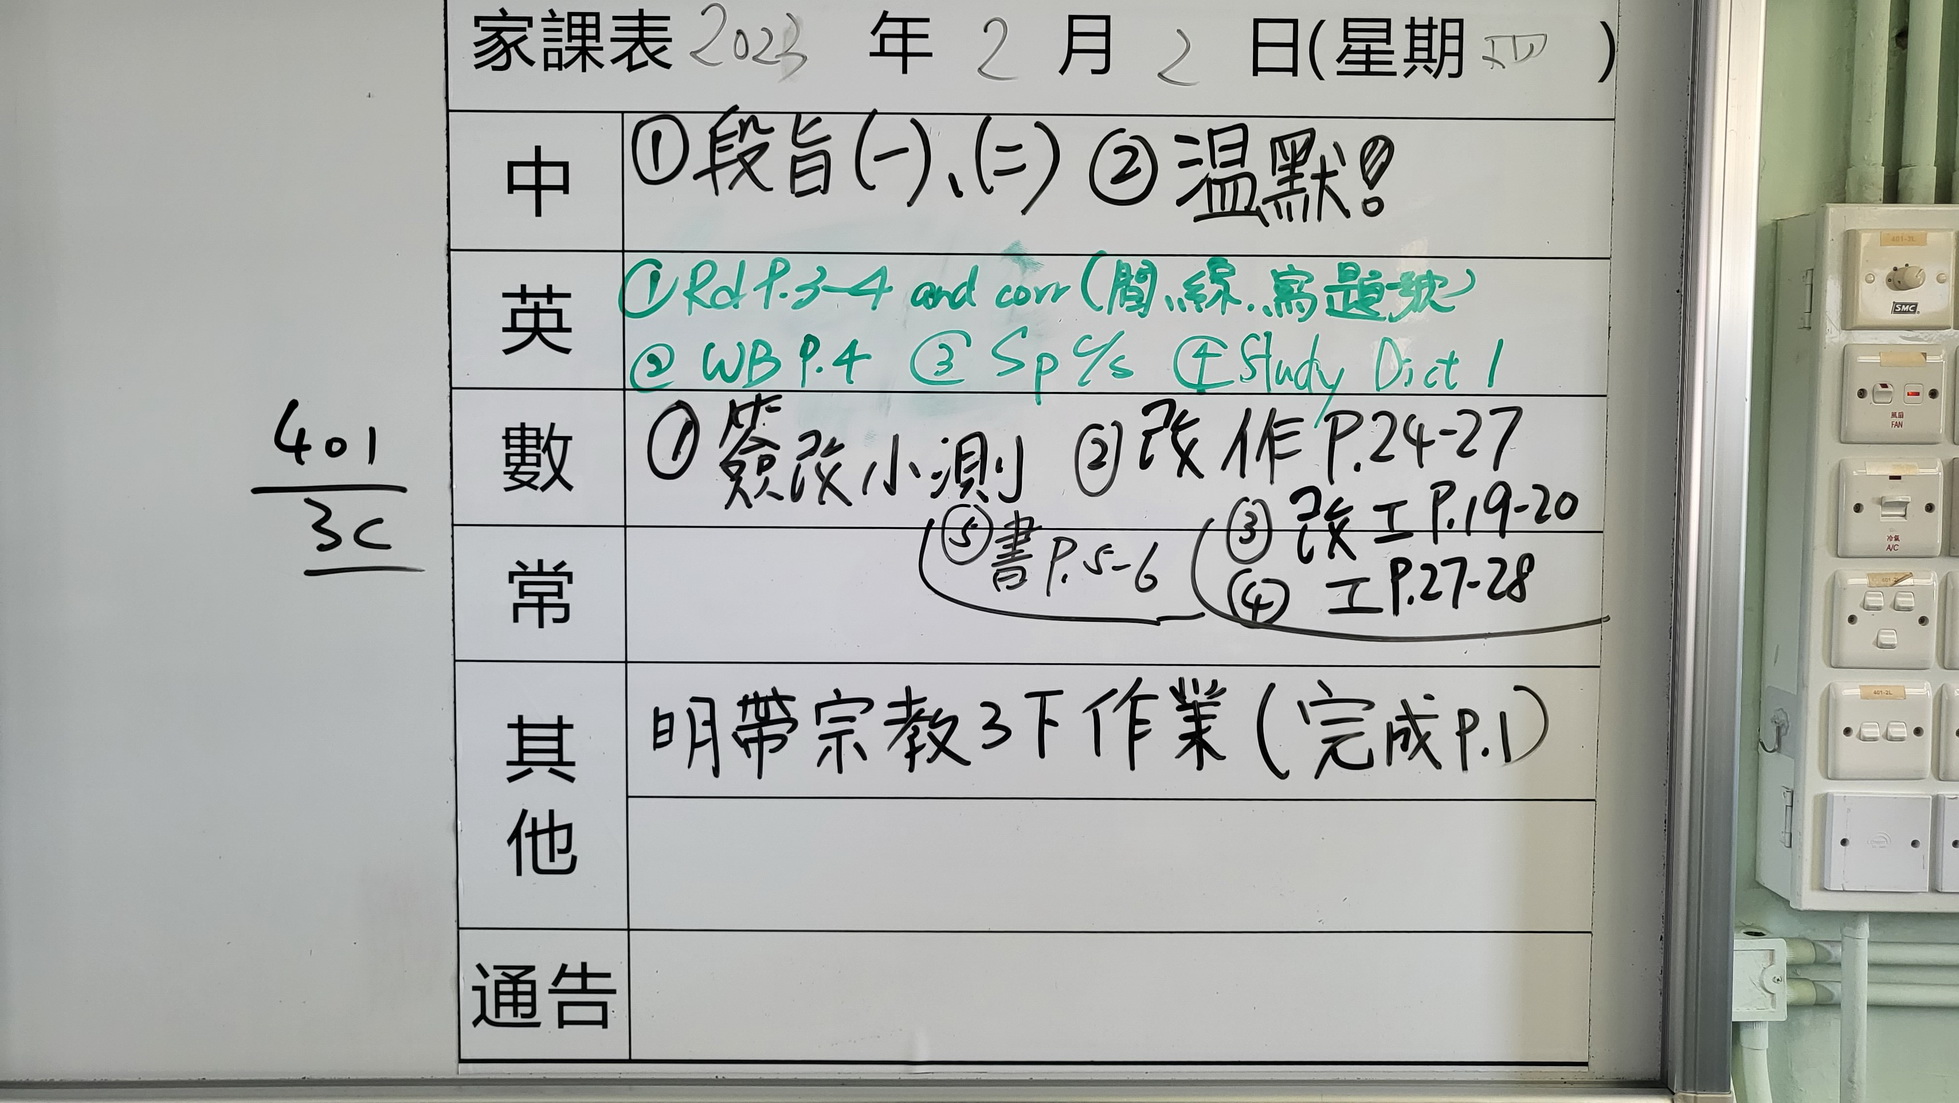 家課表 2023 年 2 月 2 日(星期 四 )
中 ①段旨(一)、(二) ②温默!
英 ①Rd P.3-4 and corr (間、線、寫題號)
② WB P.4 ③ Sp c/s ④ Study Dict 1
數 ① 簽改小測 ② 改作 P.24-27
③ 改工 P.19-20
④ 工 P.27-28
⑤ 書 P.5-6
常
其他 明帶宗教3下作業(完成P.1)
通告
401
3C
SMC
風扇
FAN
冷氣
A/C